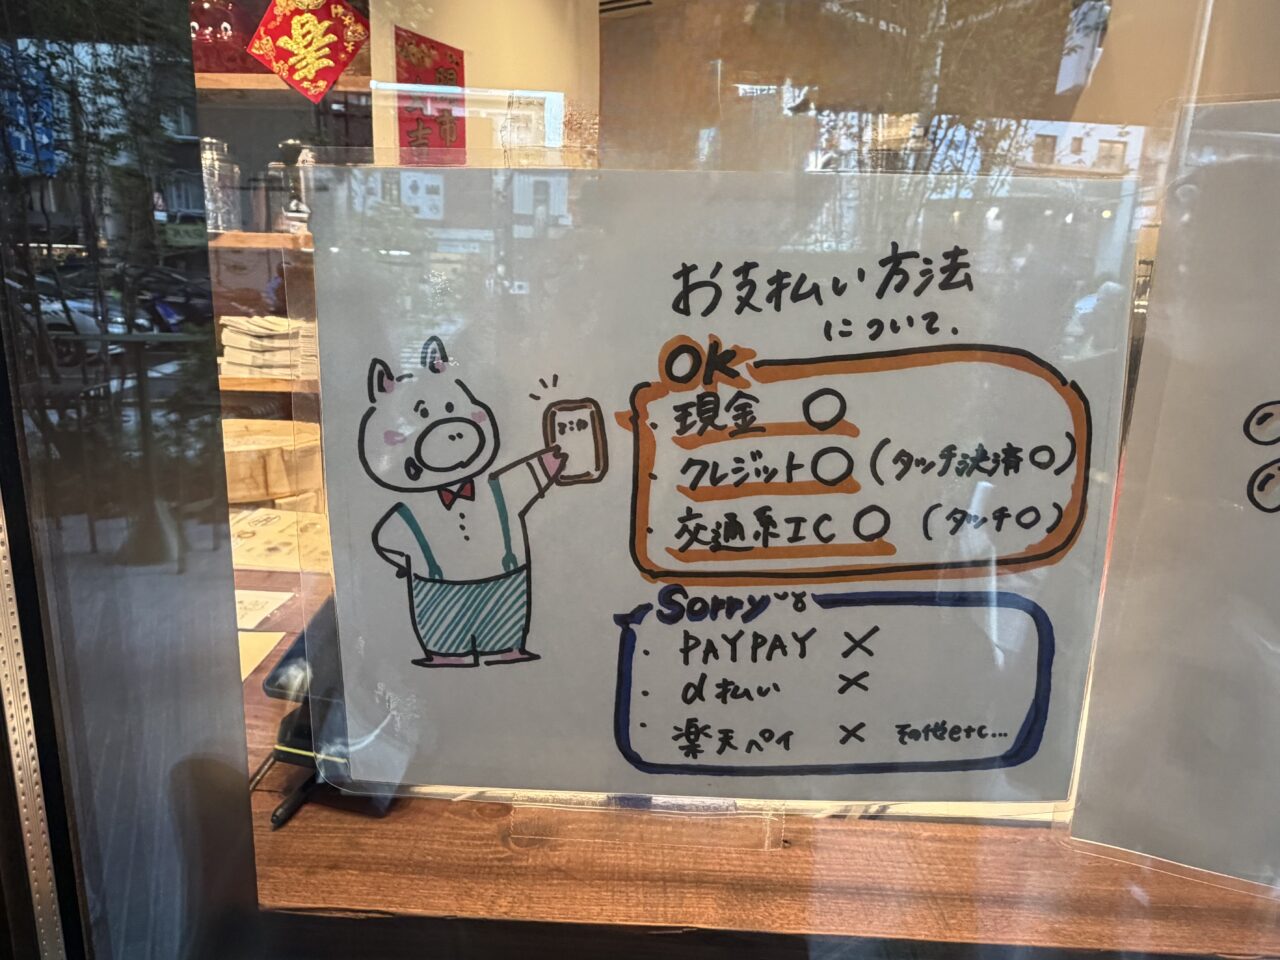 開市大吉
お支払い方法
について.
OK
・現金 ○
・クレジット○(タッチ決済○)
・交通系IC ○ (タッチ○)
Sorry
・PAYPAY ×
・d払い ×
・楽天ペイ × その他etc...